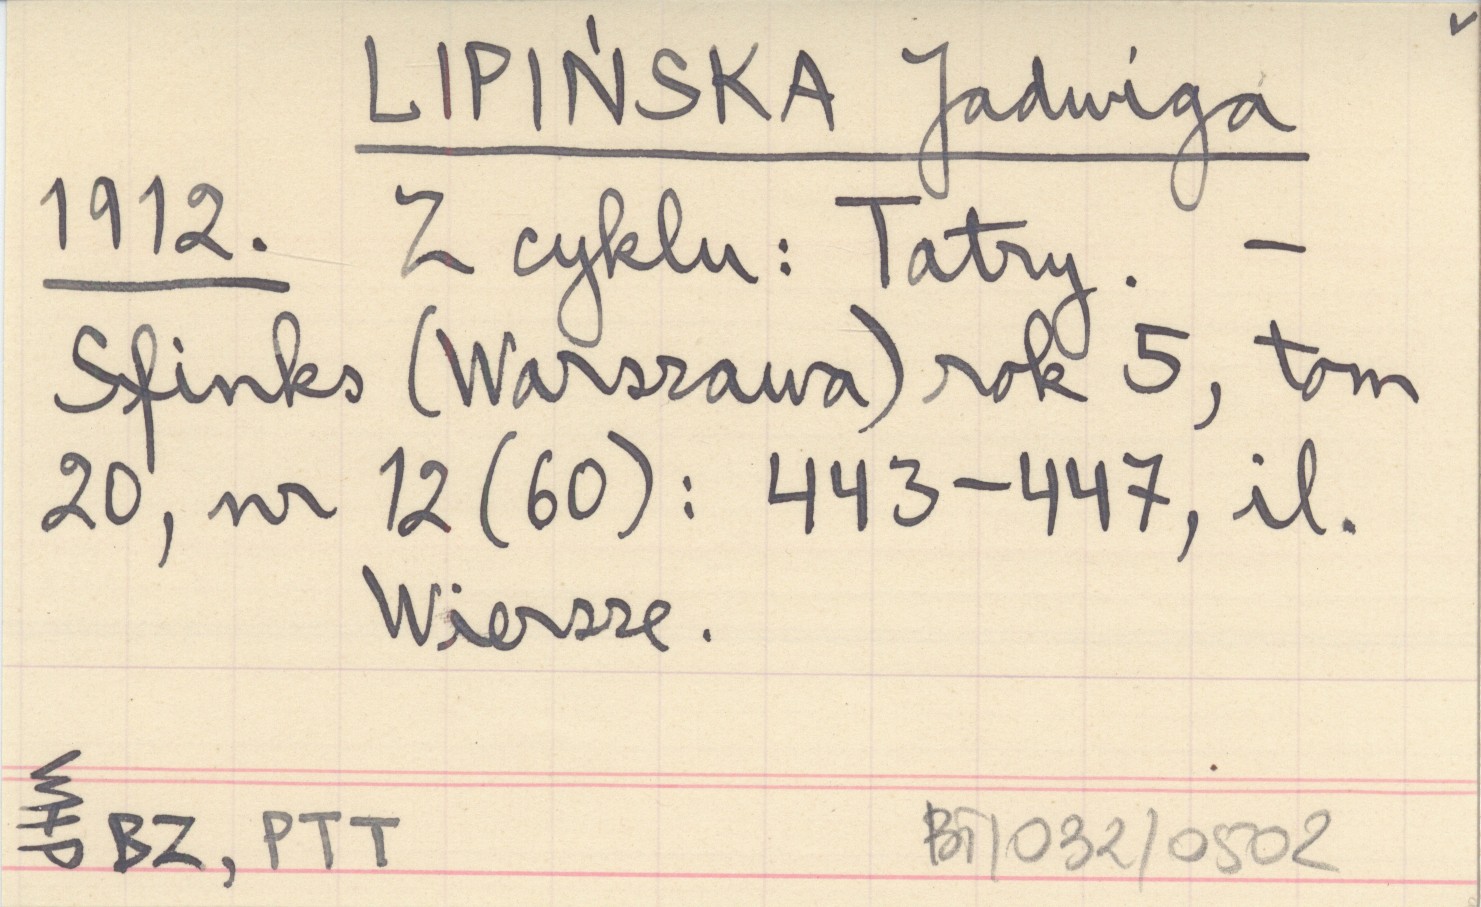 LIPIŃSKA Jadwiga
1912. Z cyklu: Tatry. –
Sfinks (Warszawa) rok 5, tom
20, nr 12(60): 443–447, il.
Wiersze.
BZ, PTT
BT/032/0502